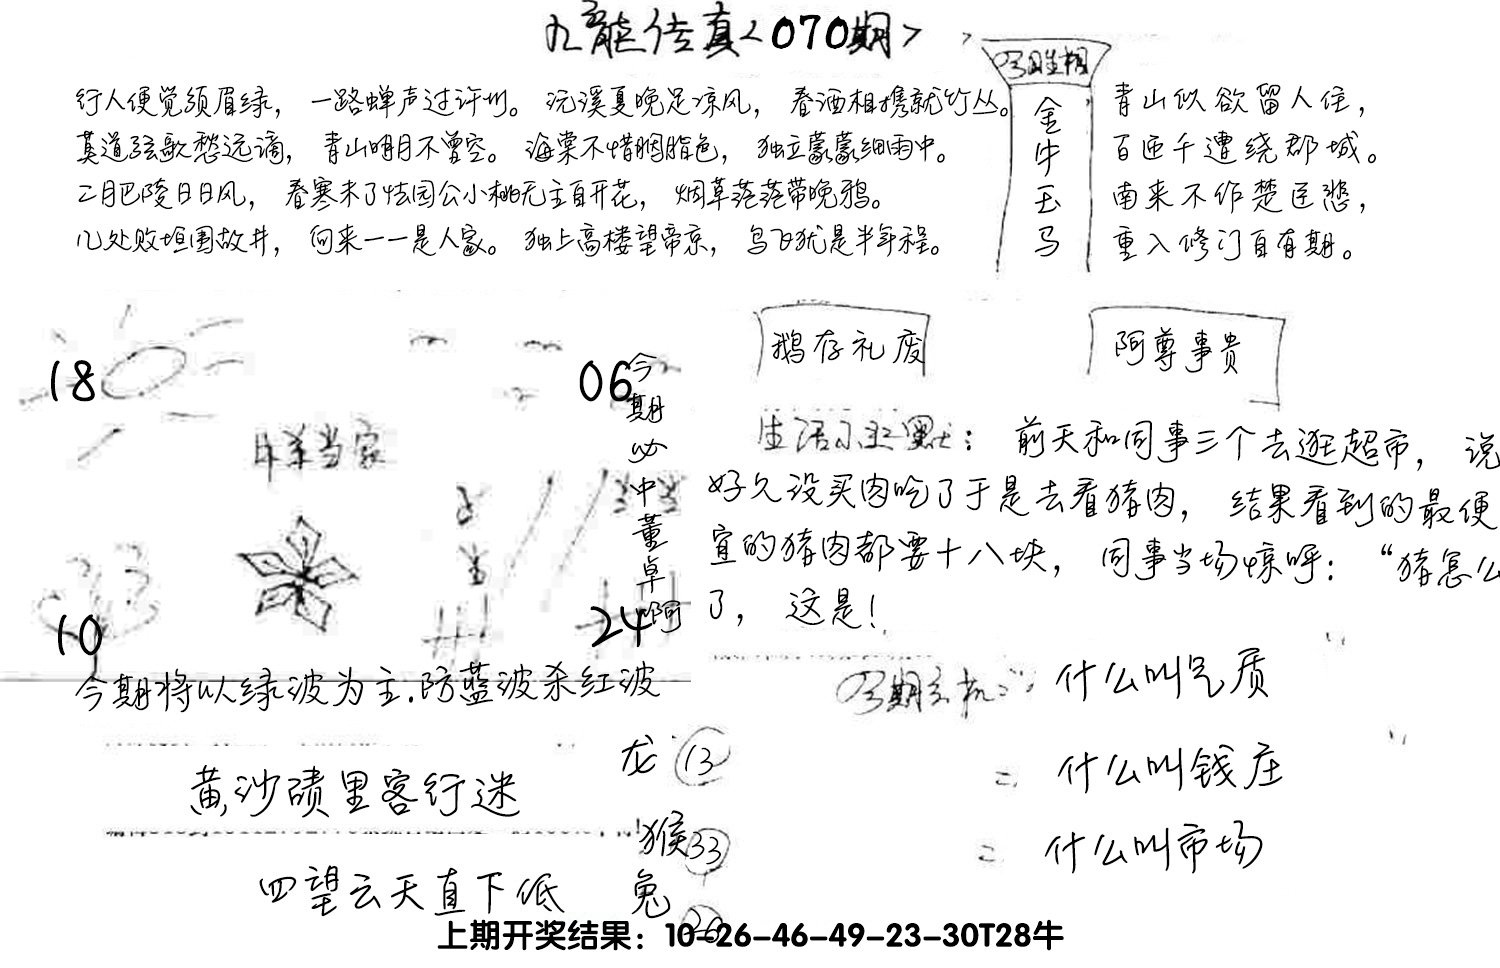 九龙传真<070期>
行人便觉须眉绿，一路蝉声过许州。沅溪夏晚足凉风，春酒相携就竹丛。
莫道弦歌愁远谪，青山明月不曾空。海棠不惜胭脂色，独立蒙蒙细雨中。
二月巴陵日日风，春寒未了怯园公小桃无主自开花，烟草茫茫带晚鸦。
几处败垣围故井，向来一一是人家。独上高楼望帝京，鸟飞犹是半年程。
今期生相
金牛玉马
青山似欲留人住，
百匝千遭绕郡城。
南来不作楚臣悲，
重入修门自有期。
18
06
牛羊当家
10
24
今期必中董卓啊
鹅存礼废
阿尊事贵
生活小幽默：前天和同事三个去逛超市，说
好久没买肉吃了于是去看猪肉，结果看到的最便
宜的猪肉都要十八块，同事当场惊呼：“猪怎么
了，这是！
今期将以绿波为主.防蓝波杀红波
今期玄机：什么叫兄质
= 什么叫钱庄
= 什么叫市场
黄沙碛里客行迷
四望云天直下低
龙 13
猴 33
兔
上期开奖结果：10-26-46-49-23-30T28牛